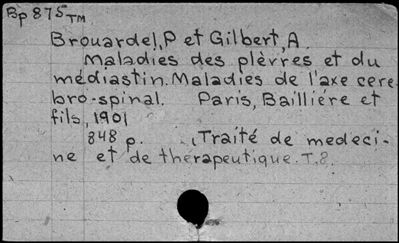 Bp 875TM
Brouardel, P et Gilbert, A.
Maladies des plèvres et du
médiastin. Maladies de l'axe cere-
bro-spinal. Paris, Baillière et
fils, 1901
848 p. (Traité de medeci-
ne et de therapeutique. T.8.